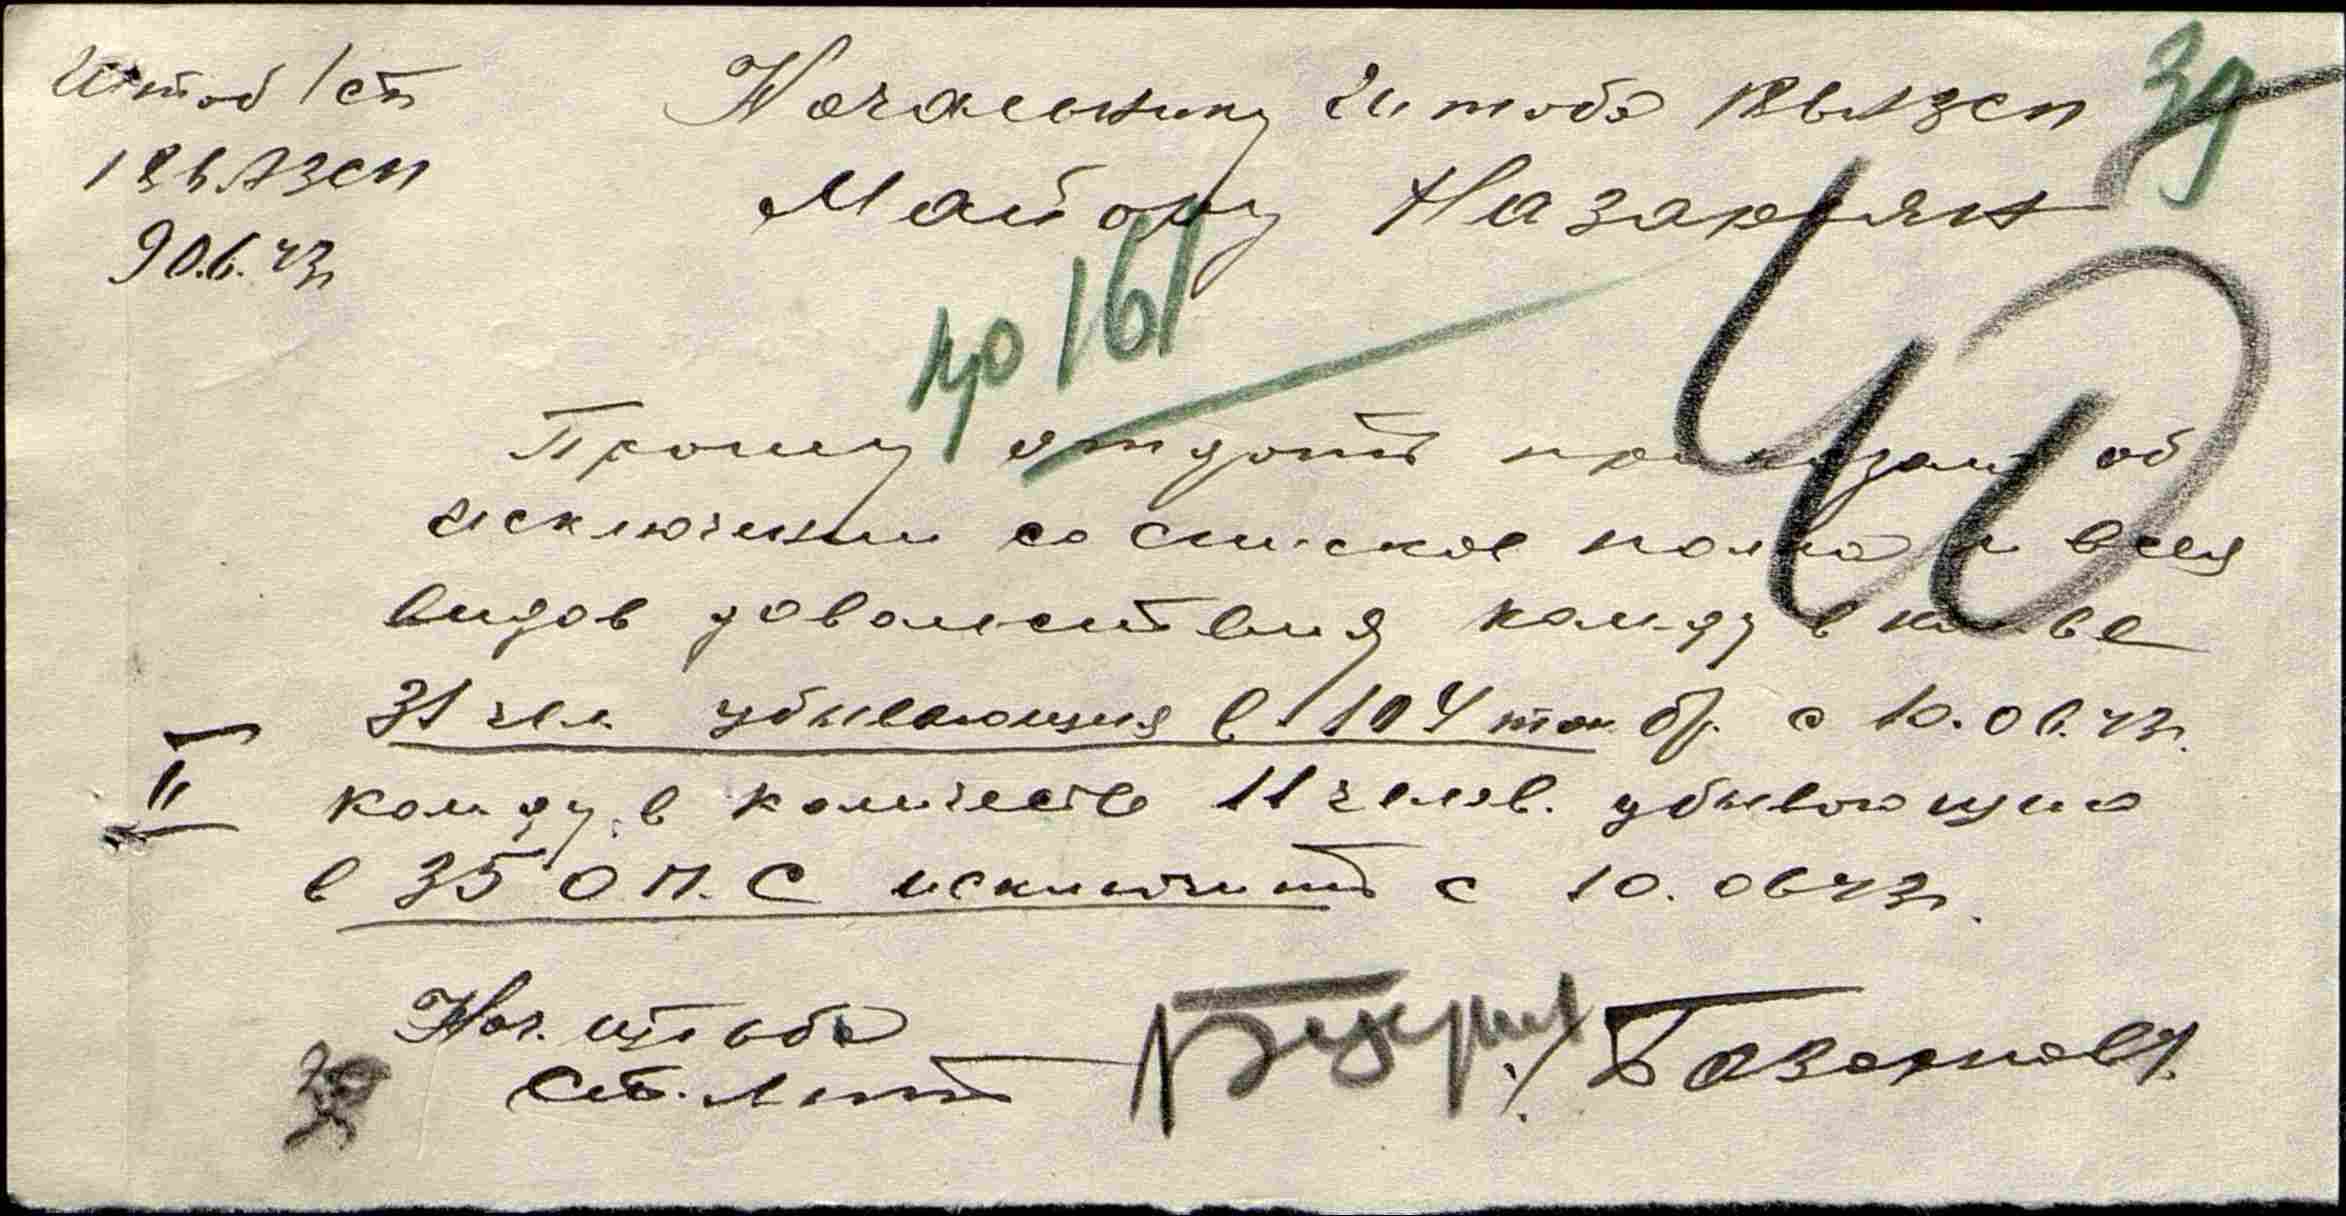 Штаб 1 сб
18 ВАЗСП
9 06. 43г
Начальнику Штаба 18 ВАЗСП
Майору Назарьян
39
40
пр 161
Прошу отдать приказан об
исключении со списков полка и всех
видов довольствия команду в кол-ве
31 чел убывающих в 104 тан. бр. с 10.06.43г.
II команду в количестве 11 челов. убывающие
в 35 О П. С исключить с 10. 06 43г.
Нач. штаба
Ст. Лейт